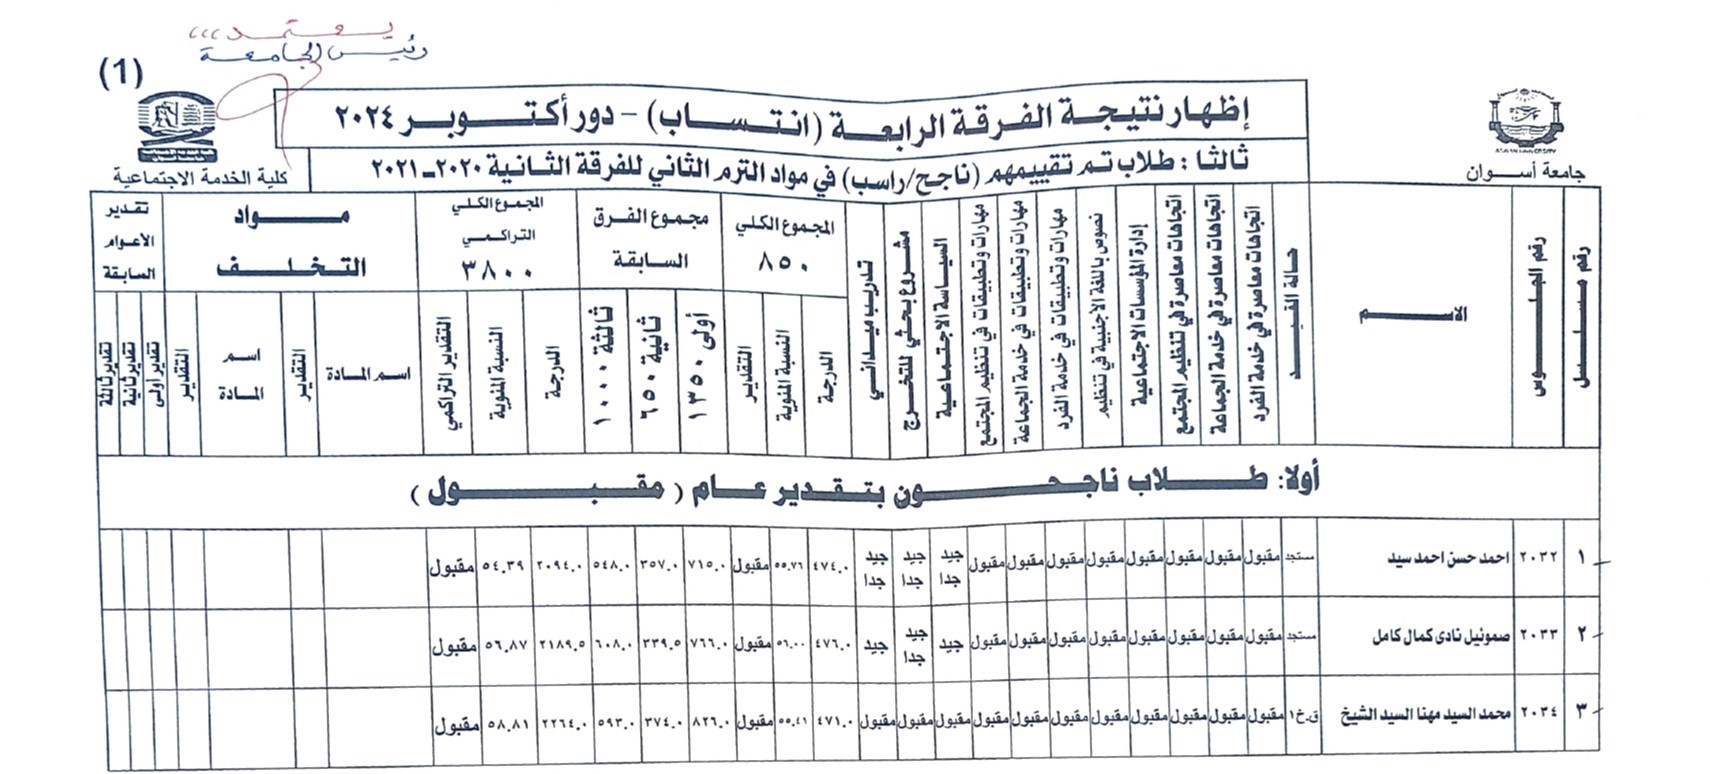 يعتمد،،،
رئيس الجامعة
(1)
جامعة أسوان
كلية الخدمة الاجتماعية
اظهار نتيجة الفرقة الرابعة (انتساب) - دور أكتوبر ٢٠٢٤
ثالثا : طلاب تم تقييمهم (ناجح/راسب) في مواد الترم الثاني للفرقة الثانية ٢٠٢٠-٢٠٢١
رقم مسلسل
رقم الجلوس
الاسم
حالة القيد
اتجاهات معاصرة في خدمة الفرد
اتجاهات معاصرة في خدمة الجماعة
اتجاهات معاصرة في تنظيم المجتمع
إدارة المؤسسات الاجتماعية
نصوص باللغة الاجنبية في تنظيم
مهارات وتطبيقات في خدمة الفرد
مهارات وتطبيقات في خدمة الجماعة
مهارات وتطبيقات في تنظيم المجتمع
السياسة الاجتماعية
مشروع بحثي للتخرج
تدريب ميداني
المجموع الكلي ٨٥٠
الدرجة
النسبة المئوية
التقدير
مجموع الفرق السابقة
أولى ١٣٥٠
ثانية ٦٥٠
ثالثة ١٠٠٠
المجموع الكلي التراكمي ٣٨٠٠
الدرجة
النسبة المئوية
التقدير التراكمي
مواد التخلف
اسم المادة
التقدير
اسم المادة
التقدير
تقدير الأعوام السابقة
تقدير أولى
تقدير ثانية
تقدير ثالثة
أولا: طلاب ناجحون بتقدير عام ( مقبول )
١ ٢٠٣٢ احمد حسن احمد سيد مستجد مقبول مقبول مقبول مقبول مقبول مقبول مقبول مقبول جيد جدا جيد جدا جيد جدا ٤٧٤.٠ ٥٥.٧٦ مقبول ٧١٥.٠ ٣٥٧.٠ ٥٤٨.٠ ٢٠٩٤.٠ ٥٤.٣٩ مقبول
٢ ٢٠٣٣ صموئيل نادى كمال كامل مستجد مقبول مقبول مقبول مقبول مقبول مقبول مقبول مقبول جيد جيد جدا جيد ٤٧٦.٠ ٥٦.٠٠ مقبول ٧٦٦.٠ ٣٣٩.٥ ٦٠٨.٠ ٢١٨٩.٥ ٥٦.٨٧ مقبول
٣ ٢٠٣٤ محمد السيد مهنا السيد الشيخ ق.خ١ مقبول مقبول مقبول مقبول مقبول مقبول مقبول مقبول مقبول مقبول مقبول ٤٧١.٠ ٥٥.٤١ مقبول ٨٢٦.٠ ٣٧٤.٠ ٥٩٣.٠ ٢٢٦٤.٠ ٥٨.٨١ مقبول